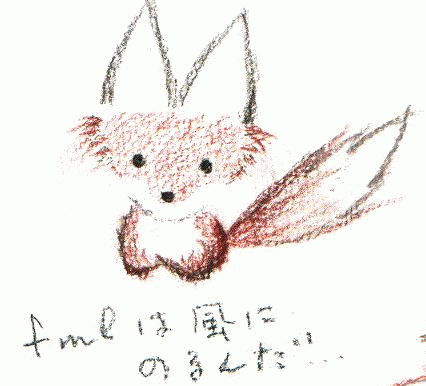 fmlは風に
のるんだ…